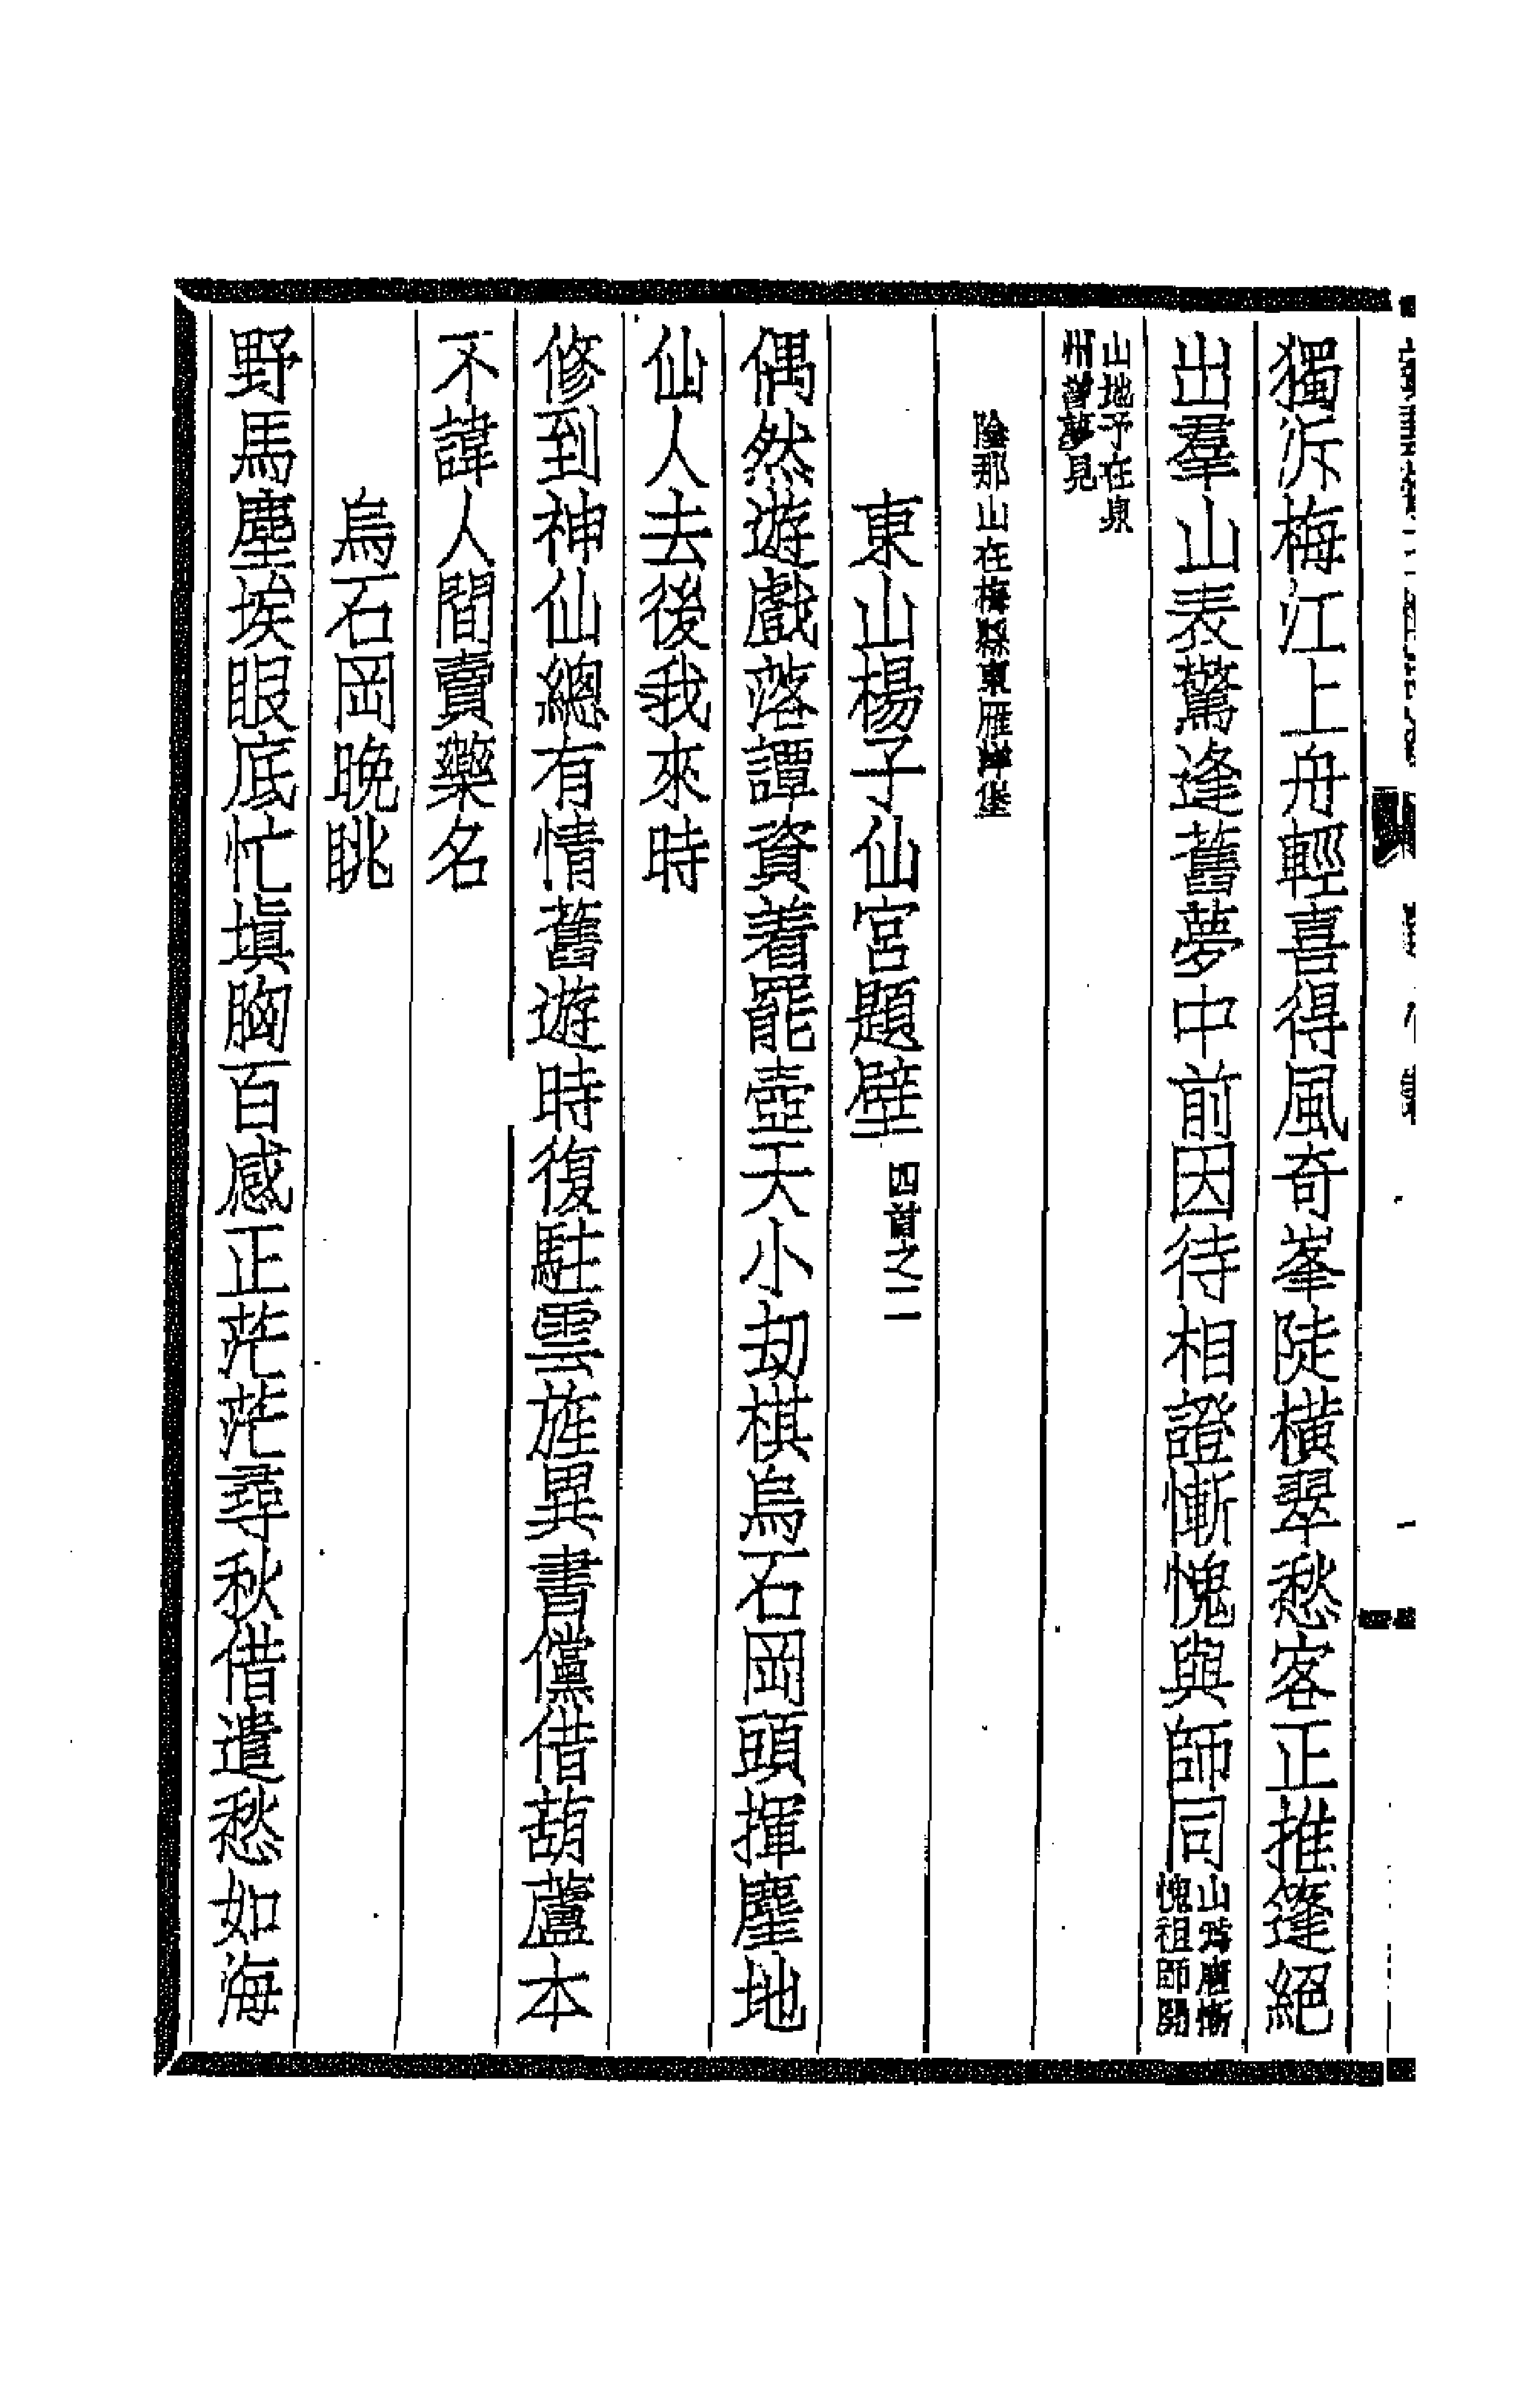 獨泝梅江上舟輕喜得風奇峯陡橫翠愁客正推篷絕
出羣山表驚逢舊夢中前因待相證慚愧與師同山爲唐慚愧祖師開
山地予在泉州曾夢見
陰那山在梅縣東雁洋堡
東山楊子仙宮題壁四首之二
偶然遊戲落譚資着罷壺天小刼棋烏石岡頭揮麈地
仙人去後我來時
修到神仙總有情舊遊時復駐雲旌異書儻借葫蘆本
不諱人間賣藥名
烏石岡晚眺
野馬塵埃眼底忙塡胸百感正茫茫尋秋借遣愁如海